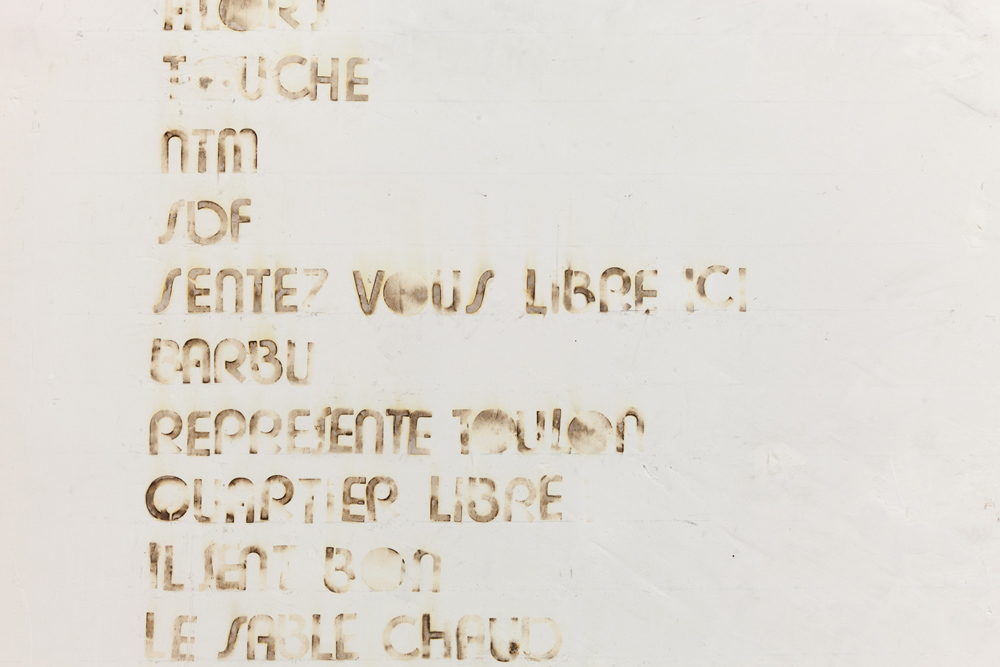 ALORS
TOUCHE
NTM
SDF
SENTEZ VOUS LIBRE ICI
BARBU
REPRESENTE TOULON
QUARTIER LIBRE
IL SENT BON
LE SABLE CHAUD